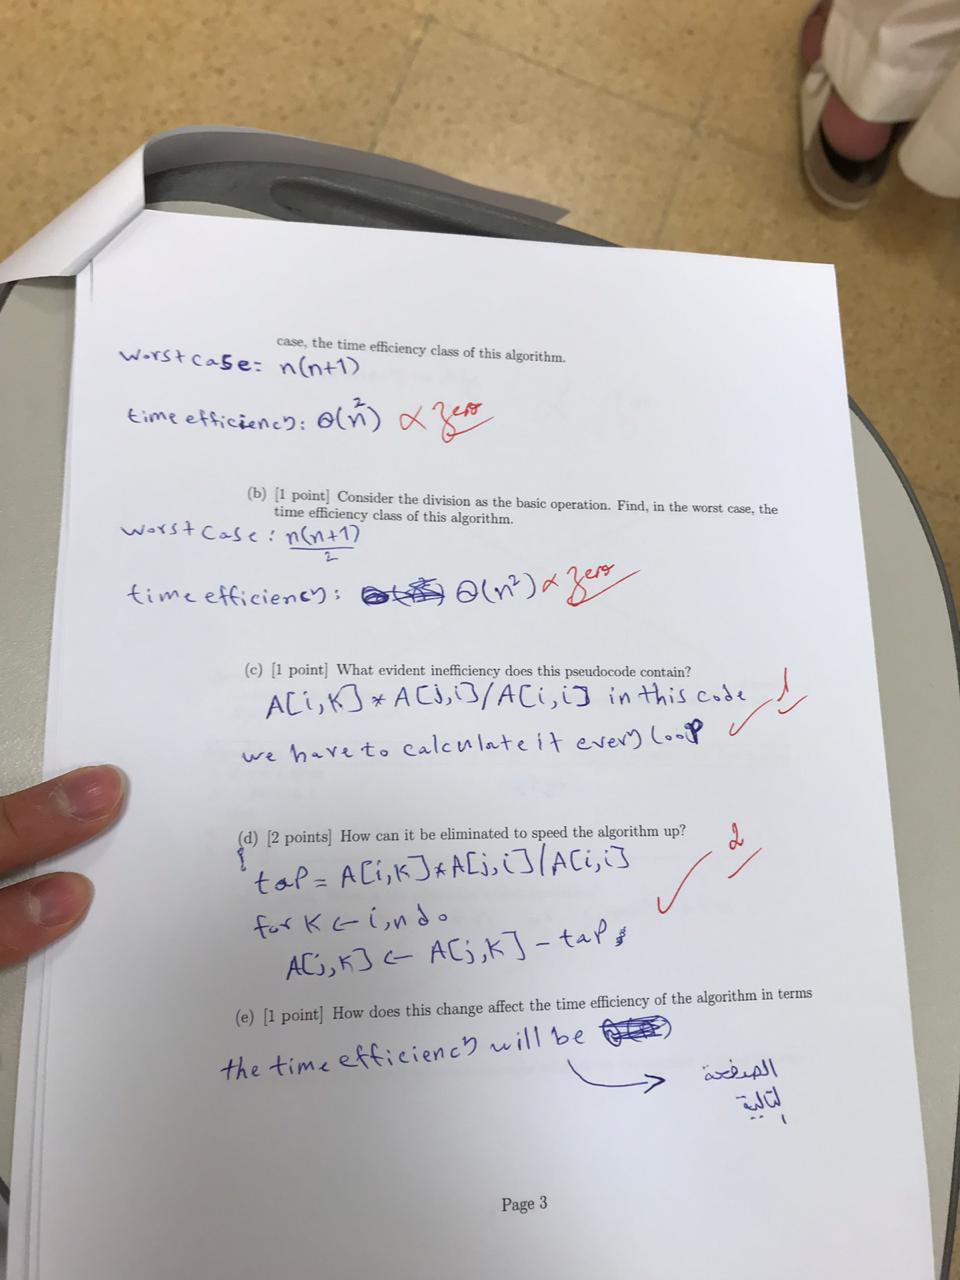 case, the time efficiency class of this algorithm.
worst case: n(n+1)
time efficiency: Θ(n²) ∝ zero
(b) [1 point] Consider the division as the basic operation. Find, in the worst case, the
time efficiency class of this algorithm.
worst case: n(n+1)/2
time efficiency: Θ(n²) ∝ zero
(c) [1 point] What evident inefficiency does this pseudocode contain?
A[i,K] * A[j,i]/A[i,i] in this code
we have to calculate it every loop
1
(d) [2 points] How can it be eliminated to speed the algorithm up?
2
tap = A[i,K]*A[j,i]/A[i,i]
for K ← i,n do
A[j,K] ← A[j,K] - tap;
(e) [1 point] How does this change affect the time efficiency of the algorithm in terms
the time efficiency will be
الصفحة
التالية
Page 3